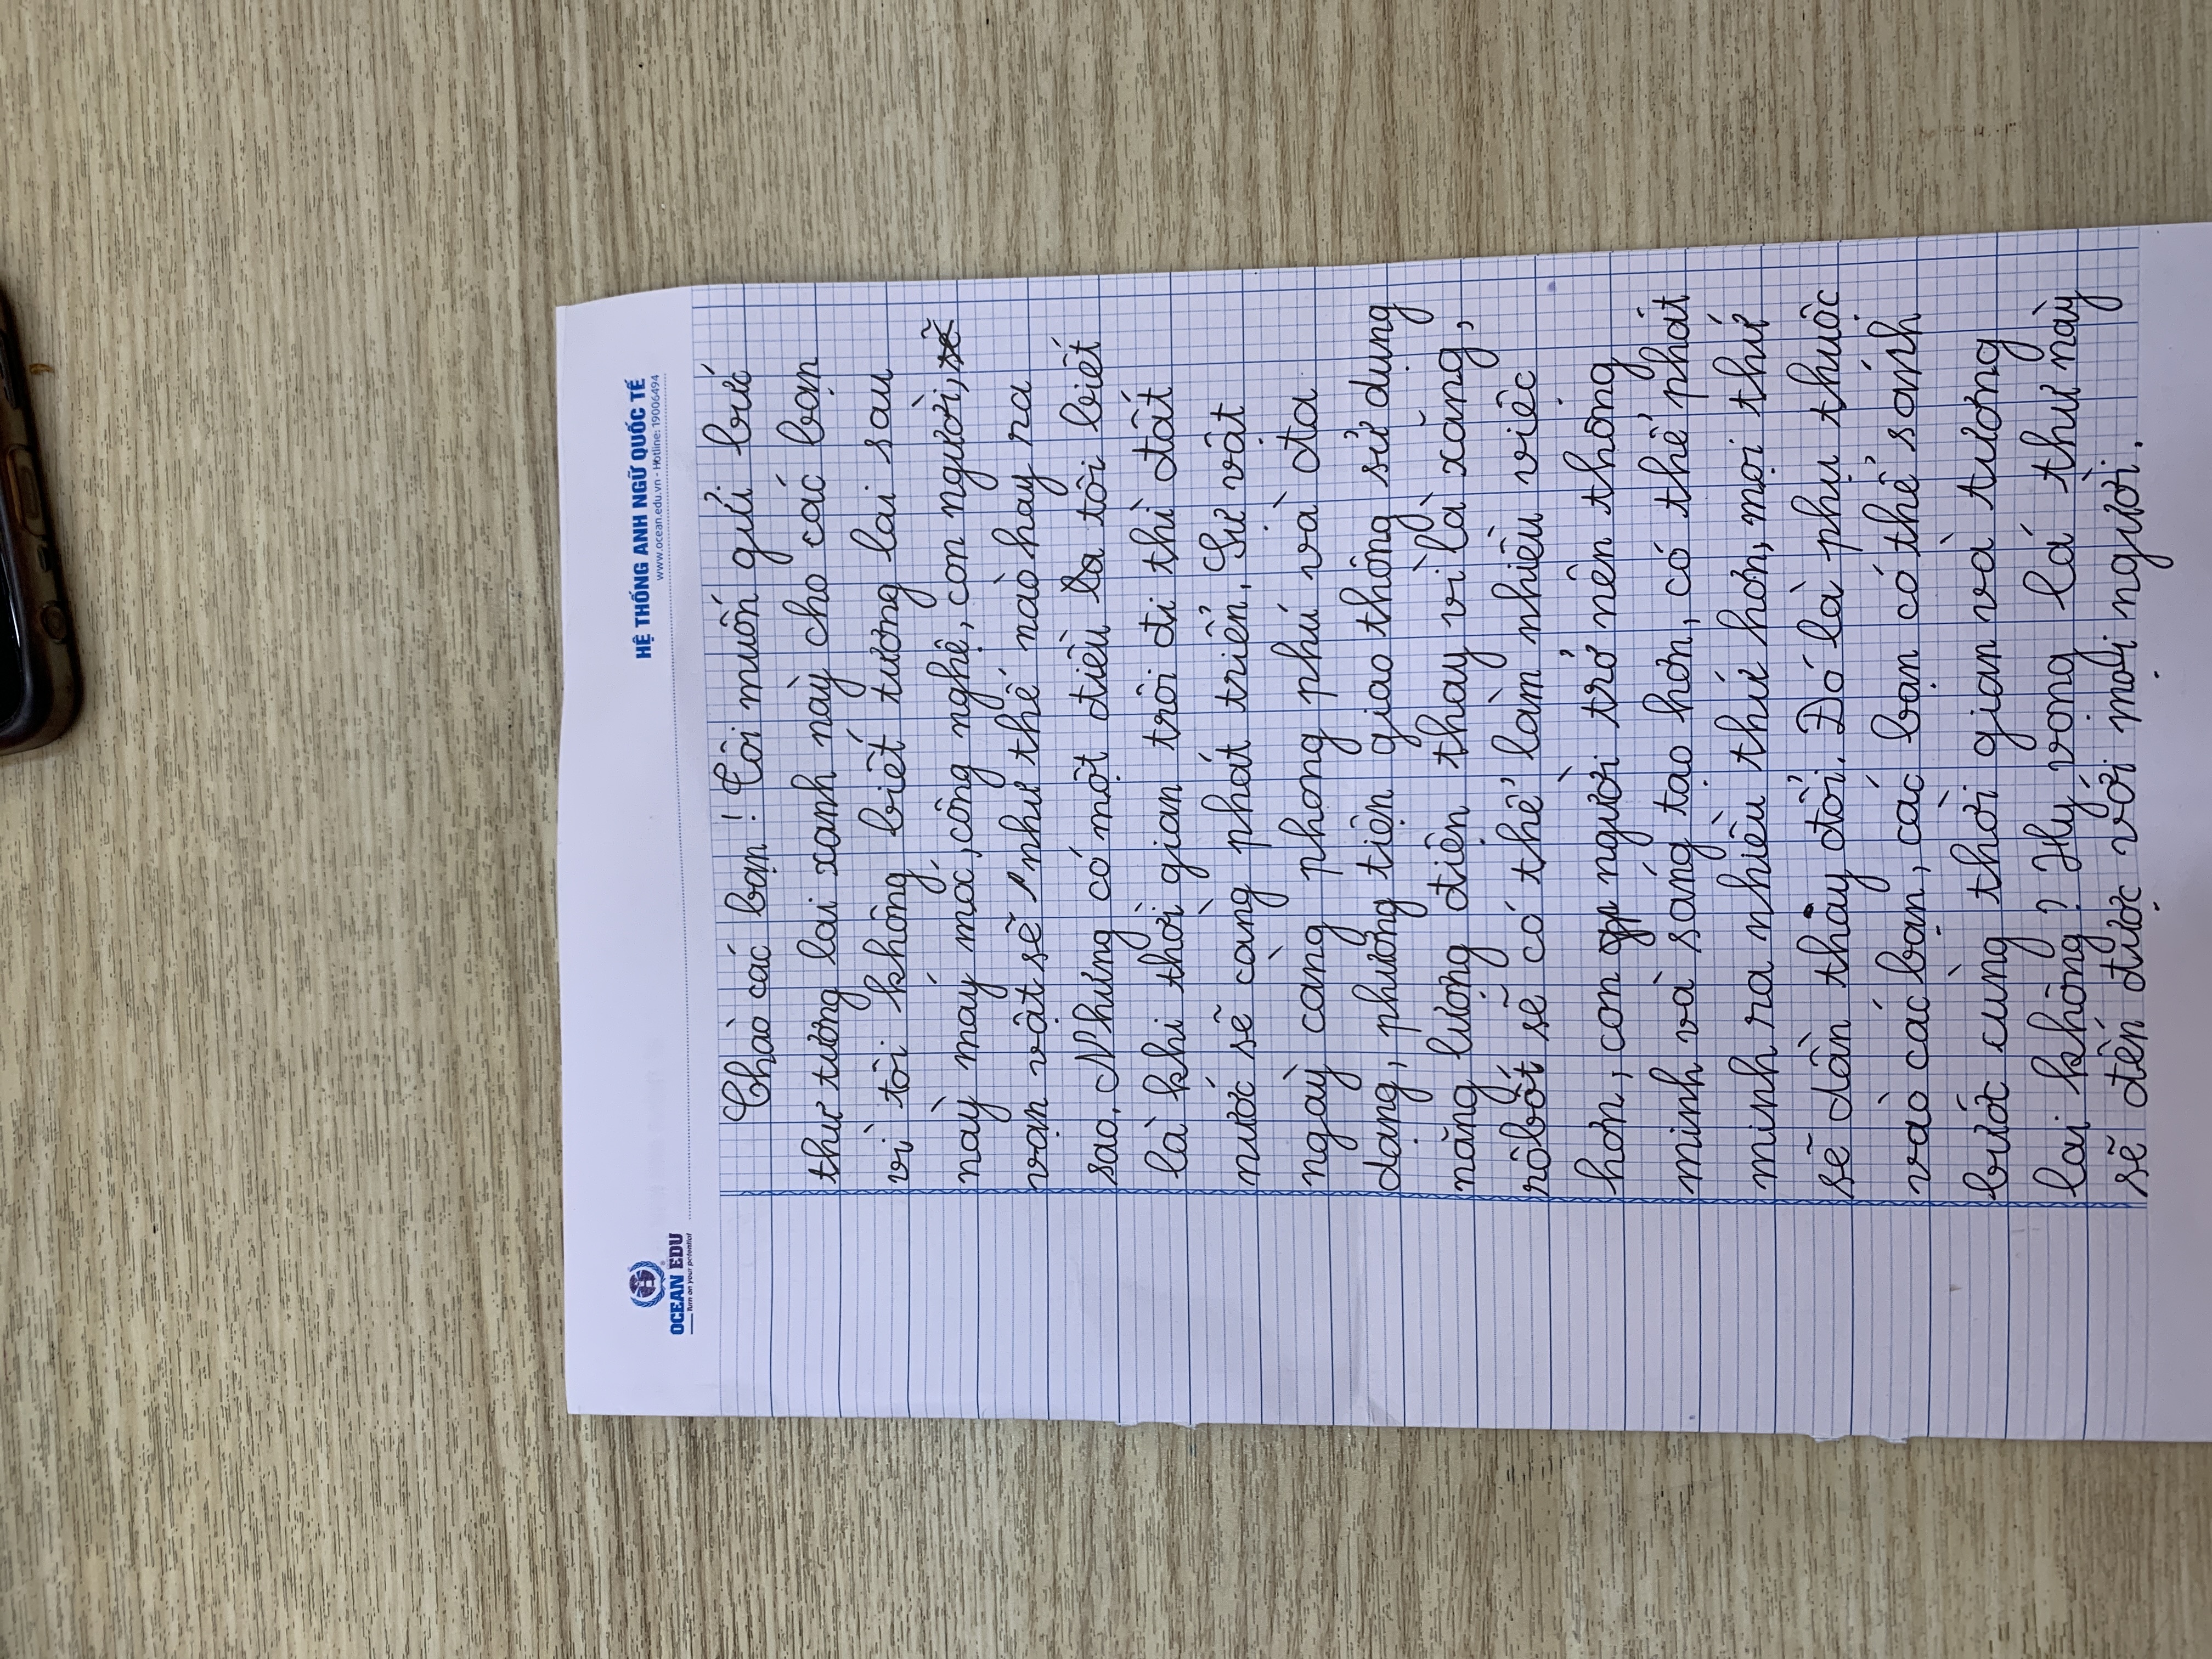 OCEAN EDU
Turn on your potential
HỆ THỐNG ANH NGỮ QUỐC TẾ
www.ocean.edu.vn - Hotline: 19006494
Chào các bạn! Tôi muốn gửi bức
thư tương lai xanh này cho các bạn
vì tôi không biết tương lai sau
này máy móc, công nghệ, con người,
vạn vật sẽ như thế nào hay ra
sao. Nhưng có một điều là tôi biết
là khi thời gian trôi đi thì đất
nước sẽ càng phát triển, Sự vật
ngày càng phong phú và đa
dạng, phương tiện giao thông sử dụng
năng lượng điện thay vì là xăng,
rôbốt sẽ có thể làm nhiều việc
hơn, con người trở nên thông
minh và sáng tạo hơn, có thể phát
minh ra nhiều thứ hơn, mọi thứ
sẽ dần thay đổi. Đó là phụ thuộc
vào các bạn, các bạn có thể sánh
bước cùng thời gian và tương
lai không? Hy vọng lá thư này
sẽ đến được với mọi người.